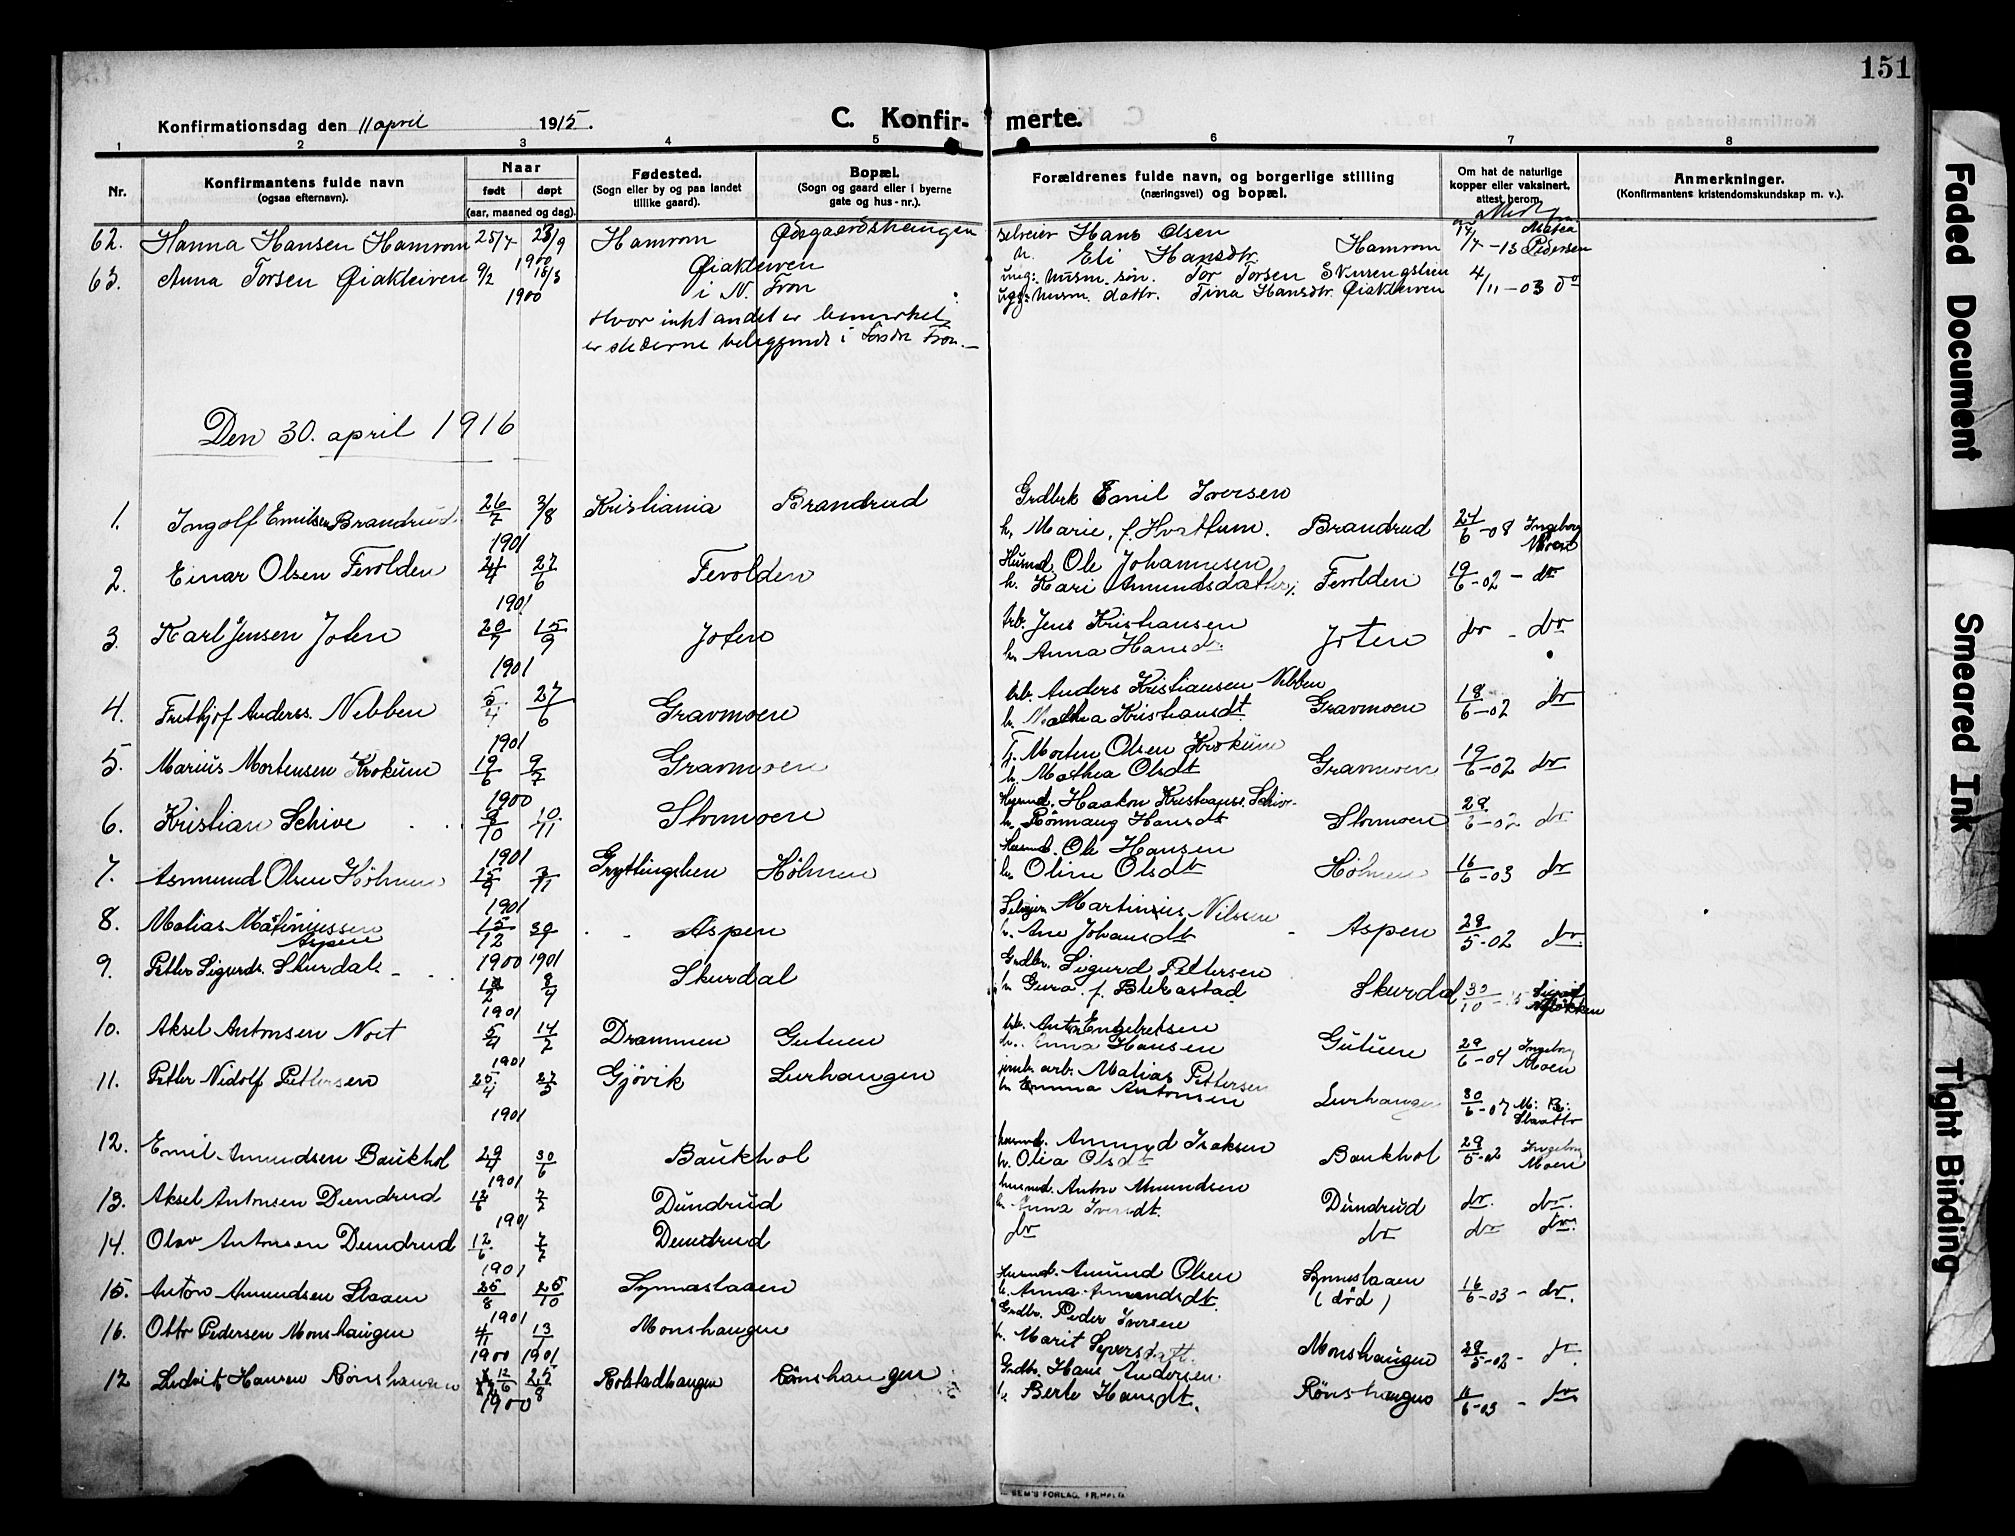 151
Konfirmationsdag den 11 april 1915.
C. Konfirmerte.
1 2 3 4 5 6 7 8
Nr.
Konfirmantens fulde navn
(ogsaa efternavn).
Naar
født døpt
(aar, maaned og dag).
Fødested.
(Sogn eller by og paa landet
tillike gaard).
Bopæl.
(Sogn og gaard eller i byerne
gate og hus-nr.).
Forældrenes fulde navn, og borgerlige stilling
(næringsvei) og bopæl.
Om hat de naturlige
kopper eller vaksinert,
attest herom.
Anmerkninger.
(Konfirmantens kristendomskundskap m. v.).
62. Hanna Hansen Hamrom 25/4 23/9 1900 Hamrom Øvsgaardshaugen selveier Hans Olsen
h. Eli Hansdtr. Hamrom /4 - 13 Pedersen
63. Anna Torsen Øiakleiven 9/2 18/3 1900 Øiakleiven i N. Fron ung: husm. søn. Tor Torsen
husm. dattr. Tina Hansdtr. Øiakleiven 4/11 - 03 do
Hvor intet andet er bemerket,
er stederne beliggende i Søndre Fron. -
Den 30. april 1916
1. Ingolf Emilsen Brandrud 26/7 3/8 1901 Kristiania Brandrud Grdbrk Emil Iversen
h. Marie, f. Hvattum. Brandrud 24/6 - 08 Ingeborg Moen
2. Einar Olsen Fevolden 24/4 27/6 1901 Fevolden Husmd. Ole Johannesen
h. Kari Amundsdatter, Fevolden 19/6 - 02 - do
3. Karl Jensen Joten 20/7 15/9 1901 Joten arb. Jens Kristiansen
h. Anna Hansd. Joten do - do
4. Frithjof Anderss. Nebben 5/4 27/6 1901 Gravmoen arb. Anders Kristiansen Nebben
h. Mathea Kristiansdt. Gravmoen 18/6 - 02 do
5. Marius Mortensen Krokum 19/6 9/7 1900 Gravmoen F. Morten Olsen Krokum
h. Mathea Olsdt Gravmoen 19/6 - 02 do
6. Kristian Schive 9/10 10/11 1901 Stormoen Haakon Kristianss. Schive
h. Rønnaug Hansdt Stormoen 29/6 - 02 do
7. Asmund Olsen Hölmen 15/9 3/11 1901 Gryttingslien Hölmen Husmd. Ole Hansen
h. Oline Olsdt Hölmen 16/6 - 03 do
8. Matias Martiniussen Aspen 15/12 1900 1901 Aspen Selveier Martinius Nilsen
h. Ane Johansdt Aspen 29/5 - 02 do.
9. Petter Sigurds. Skurdal 12/2 8/4 1901 Skurdal Grdbr. Sigurd Pettersen
h. Guro f. Blekastad Skurdal 30/10
10. Aksel Antonsen Noet 5/4 14/7 1901 Drammen Gutuen arb. Anton Engebretsen
h. Anna Hansen Gutuen 29/6 - 04 Ingeborg Moen
11. Petter Nidolf Pettersen 20/4 27/5 1901 Gjövik Lurhaugen jernb. arb. Matias Pettersen
h. Emma Antonsen Lurhaugen 30/6 - 07
12. Emil Amundsen Baukhol 29/4 30/6 1901 Baukhol husmd. Amund Isaksen
h. Olea Olsdt Baukhol 29/5 - 02 Ingeborg Moen
13. Aksel Antonsen Dundrud 12/6 7/7 1901 Dundrud husmd. Anton Amundsen
h. Anna Iversdt. Dundrud do. do.
14. Olav Antonsen Dundrud 12/6 7/7 1901 Dundrud do do do do.
15. Anton Amundsen Slaaen 25/8 25/10 1901 Synnaslaaen Husmd. Amund Olsen
h. Anna Amundsdt. Synneslaaen (död) 16/6 - 03 - do.
16. Otto Pedersen Monshaugen 4/11 13/1 1900 1901 Monshaugen Grdbr. Peder Iversen
h. Marit Syversdatt. Monshaugen 29/5 - 02 - do.
17 Ludvik Hansen Rönshaugen 12/6 25/8 1900 Rolstadhaugen Rönshaugen Grdbr. Hans Andersen.
h. Berte Hansdt. Rönshaugen 11/6 - 03 - do
SEM'S FORLAG, FR.HALD
Faded Document
Smeared Ink
Tight Binding